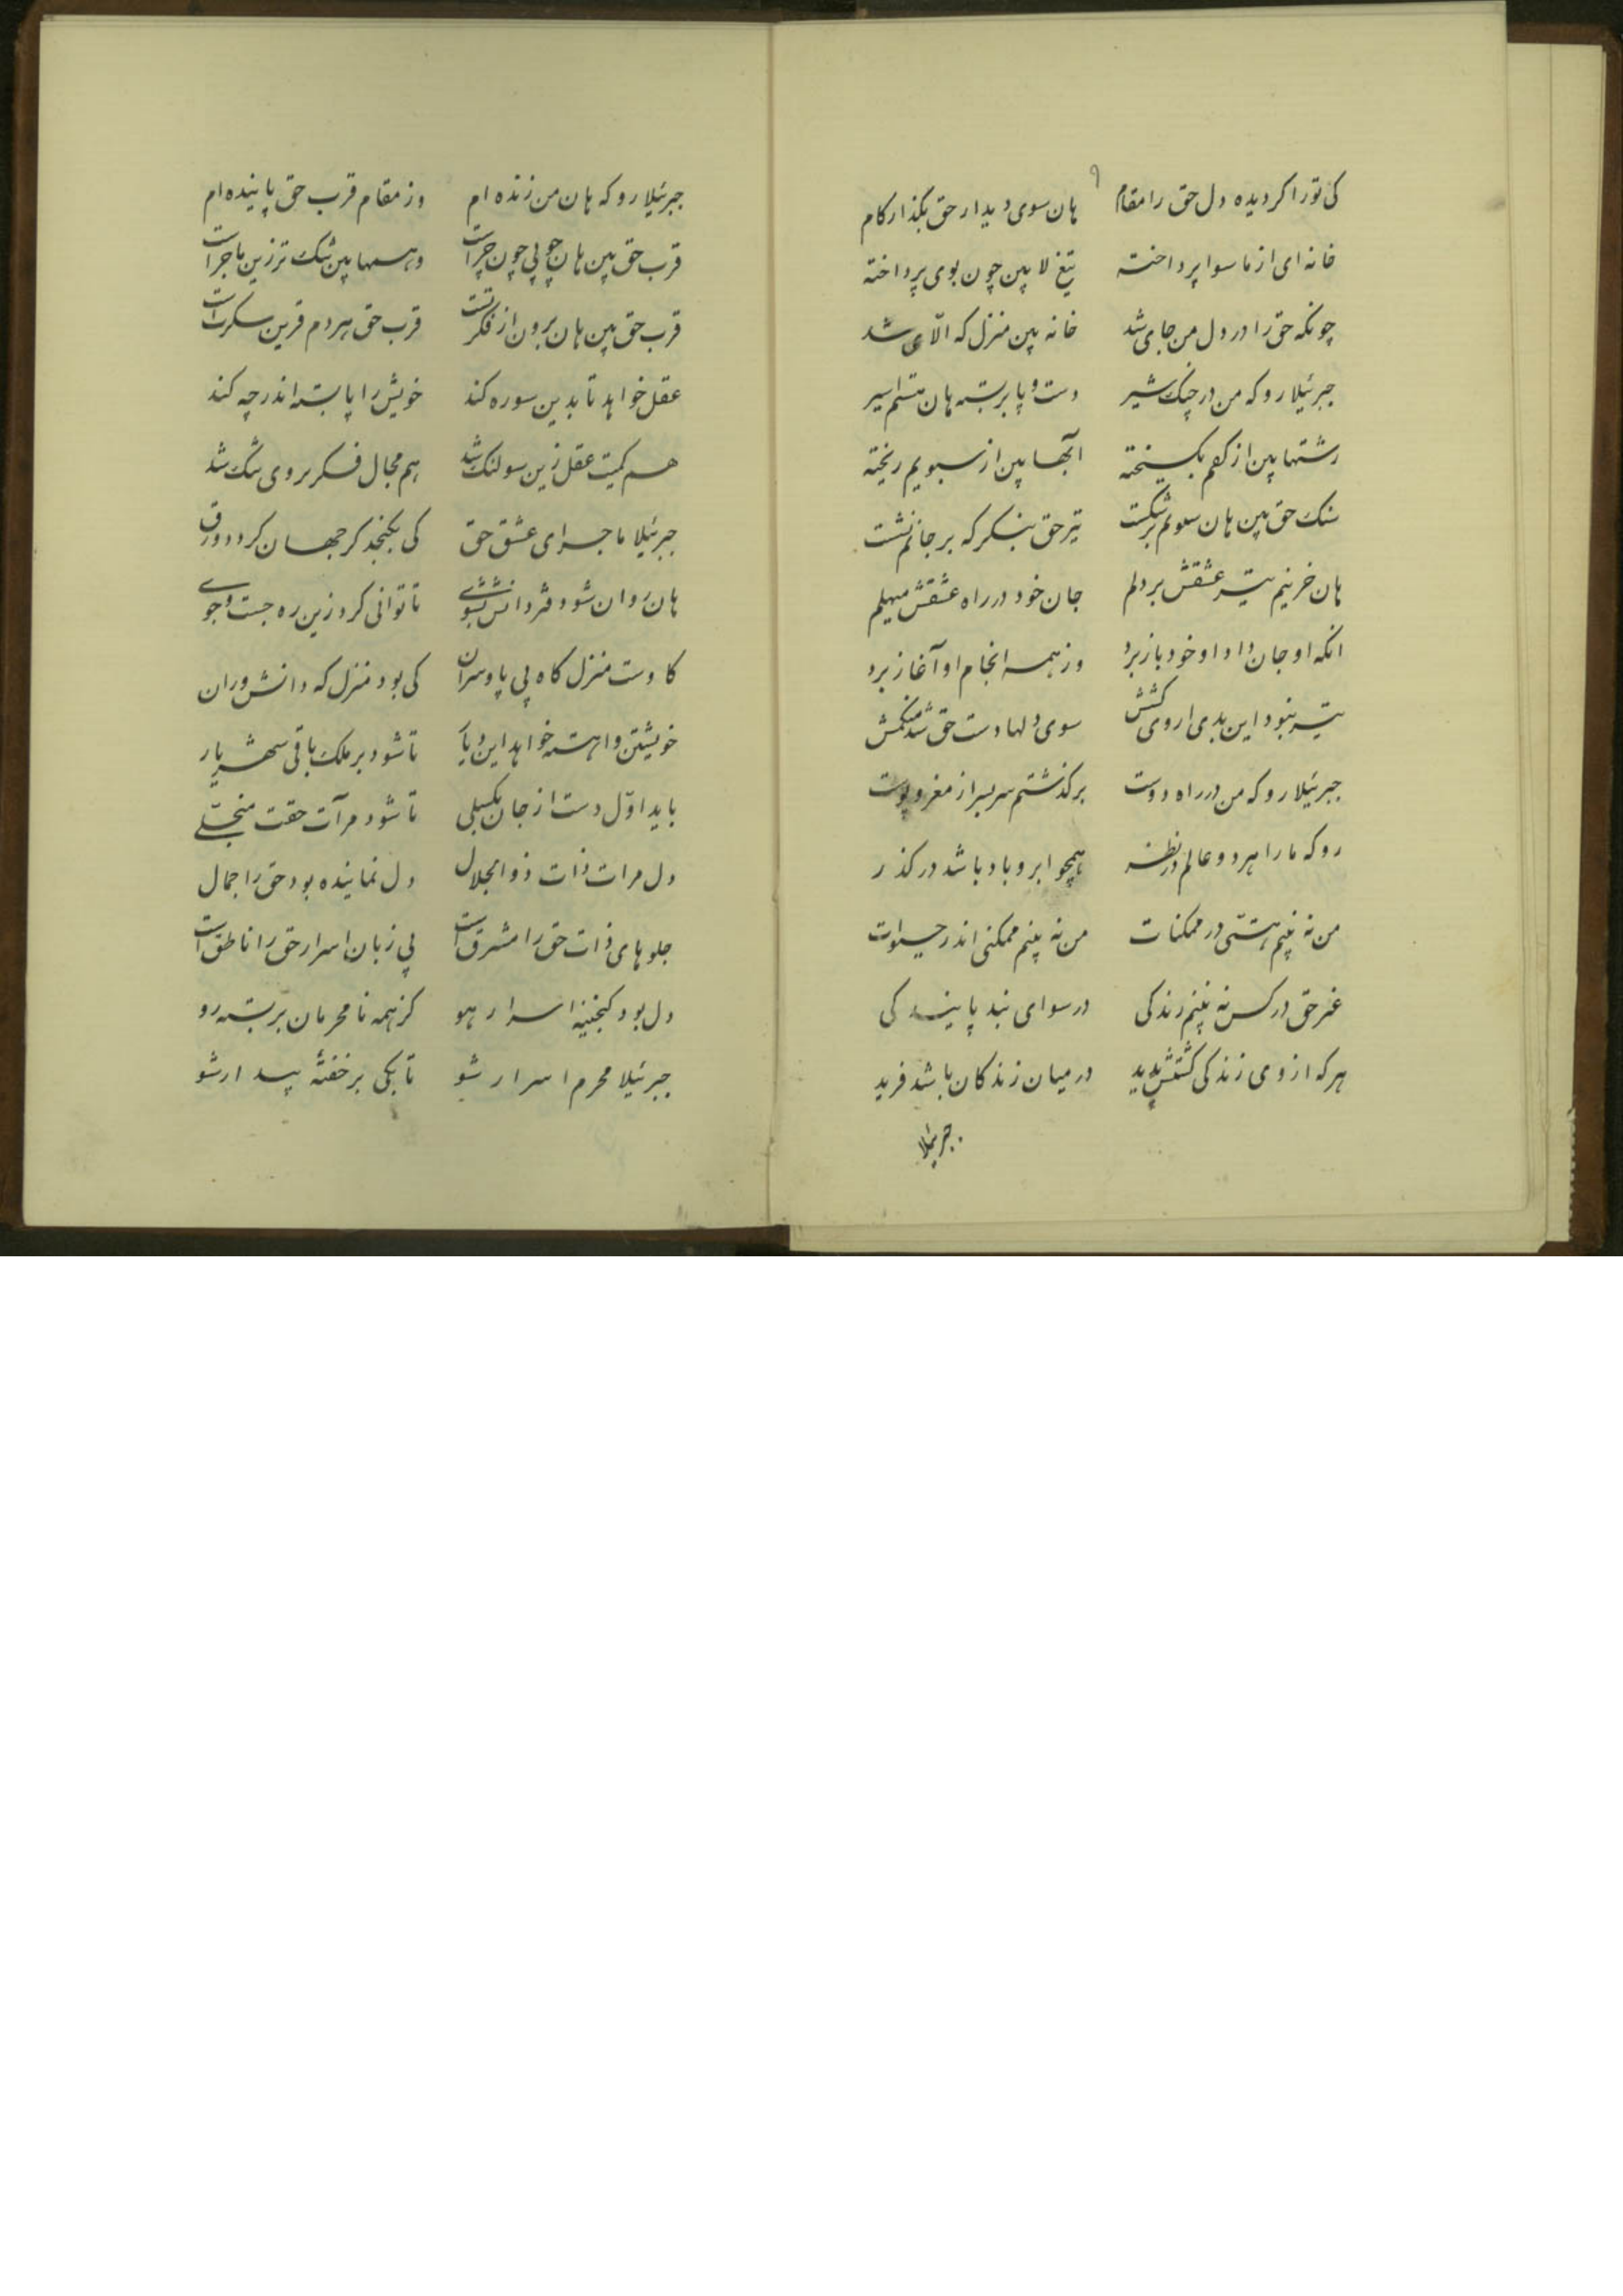 ۹
کی تو را کردیده دل حق را مقام هان سوی دیدار حق بگذار کام
خانه ای از ما سوا پرداخته تیغ لا بین چون بوی پرداخته
چونکه حق را در دل من جای شد خانه بین منزل که الّای شد
جبرئیلا رو که من در چنک شیر دست و پا بربسته هان هستم اسیر
رشتها بین از کفم بکسیخته آبها بین از سبویم ریخته
سنک حق بین هان سبویم بر شکست تیر حق بنکر که بر جانم نشست
هان خرینم تیر عشقش بر دلم جان خود در راه عشقش میهلم
انکه او جان داد او خود باز برد وز همه انجام او آغاز برد
تیر نبود این بدی از وی کشش سوی دلها دست حق شد منکمش
جبرئیلا رو که من در راه دوست برکذشتم سربسر از مغز و پوست
رو که ما را هر دو عالم در نظر همچو ابر و باد باشد در کذر
من نه بینم هستی در ممکنات من نه بینم ممکنی اندر حیوات
غیر حق در کس نه بینم زندکی در سوای نبد پایندکی
هر که از وی زندکی کشتش پدید در میان زندکان باشد فرید
جبرئیلا
جبرئیلا رو که هان من زنده ام وز مقام قرب حق پاینده ام
قرب حق بین هان چو بی چون چراست وهمها بین تنک تر زین ماجراست
قرب حق بین هان برون از فکرتست قرب حق هر دم قرین سکرتست
عقل خواهد تا بدین سو ره کند خویش را پا بسته اندر چه کند
هم کمیت عقل زین سو لنک شد هم مجال فکر بر وی تنک شد
جبرئیلا ماجرای عشق حق کی بکنجد کر جهان کردد ورق
هان روان شو دفتر دانش بشوی تا توانی کرد زین ره جست و جوی
کاوست منزل کاه بی پا و سران کی بود منزل که دانش وران
خویشتن وارسته خواهد این دیار تا شود بر ملک باقی شهریار
باید اوّل دست از جان بکسلی تا شود مرآت حقت منجلی
دل مرات ذات ذوالجلال دل نماینده بود حق را جمال
جلوهای ذات حق را مشرق است بی زبان اسرار حق را ناطق است
دل بود کنجینه اسرار هو کز همه نامحرمان بربسته رو
جبرئیلا محرم اسرار شو تا بکی بر خفتهٔ بیدار شو